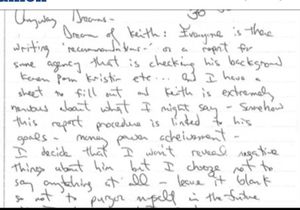 Dreams -
Dream of Keith: Everyone is there
writing 'recommendations' or a report for
some agency that is checking his background
Karen Pam Kristin etc... and I have a
sheet to fill out and Keith is extremely
nervous about what I might say - Somehow
this report procedure is linked to his
goals - money power acheivement -
I decide that I won't reveal negative
things about him but I choose not to
say anything at all - leave it blank
so not to purger myself in the future